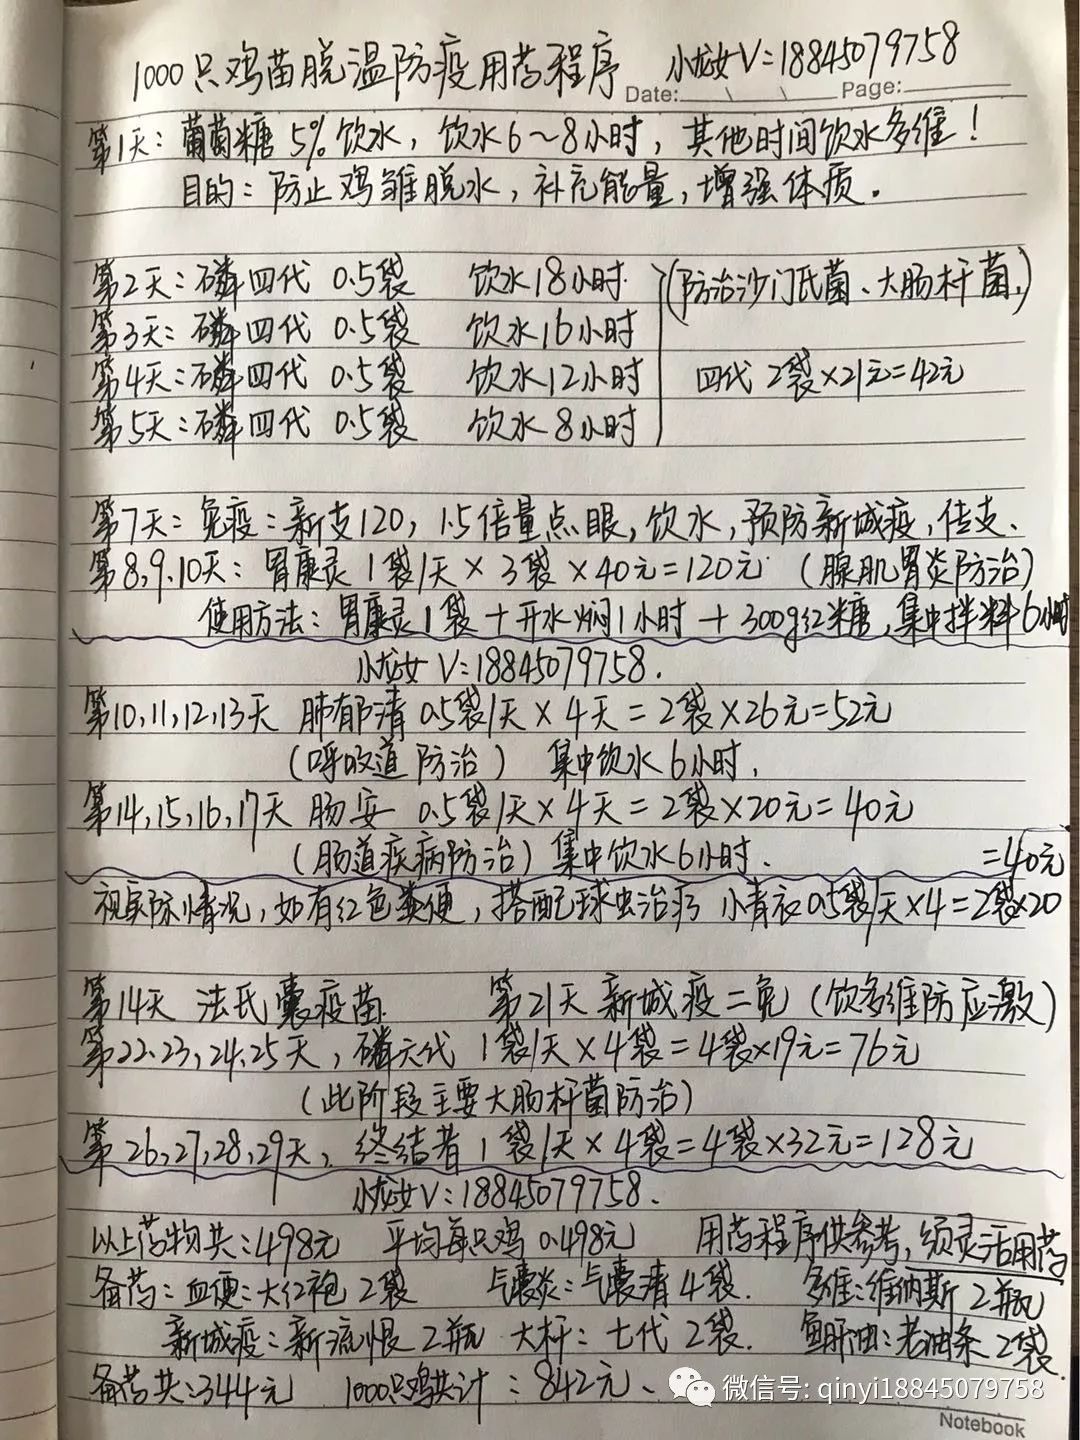 1000只鸡苗脱温防疫用药程序 小龙女V=18845079758
Date: Page:
第1天：葡萄糖 5% 饮水，饮水6～8小时，其他时间饮水多维！
目的：防止鸡雏脱水，补充能量，增强体质。
第2天：磷四代 0.5袋 饮水18小时 (防治沙门氏菌、大肠杆菌,)
第3天：磷四代 0.5袋 饮水16小时
第4天：磷四代 0.5袋 饮水12小时 四代 2袋×21元=42元
第5天：磷四代 0.5袋 饮水8小时
第7天：免疫：新支120，1.5倍量点眼，饮水，预防新城疫，传支、
第8,9.10天：胃康灵 1袋/天 × 3袋 × 40元=120元 (腺肌胃炎防治)
使用方法：胃康灵1袋+开水焖1小时+300g红糖,集中拌料6小时
小龙女 V=18845079758.
第10,11,12,13天 肺郁清 0.5袋/天 × 4天 = 2袋×26元=52元
(呼吸道防治) 集中饮水6小时,
第14,15,16,17天 肠安 0.5袋/天×4天 = 2袋×20元=40元
(肠道疾病防治) 集中饮水6小时. =40元
视实际情况，如有红色粪便，搭配球虫治疗 小青衣0.5袋/天×4=2袋×20
第14天 法氏囊疫苗. 第21天 新城疫二免 (饮多维防应激)
第22.23,24,25天，磷六代 1袋/天×4袋=4袋×19元=76元
(此阶段主要大肠杆菌防治)
第26,27,28,29天，终结者 1袋/天×4袋=4袋×32元=128元
小龙女V：18845079758.
以上药物共：498元 平均每只鸡0.498元 用药程序供参考，须灵活用药
备药：血便：大红袍 2袋 气囊炎：气囊清 4袋. 多维：维纳斯 2瓶
新城疫：新流恨 2瓶 大杆：七代 2袋. 鱼肝油：老油条 2袋.
备药共：344元 1000只鸡共计：842元、 微信号: qinyi18845079758
Notebook